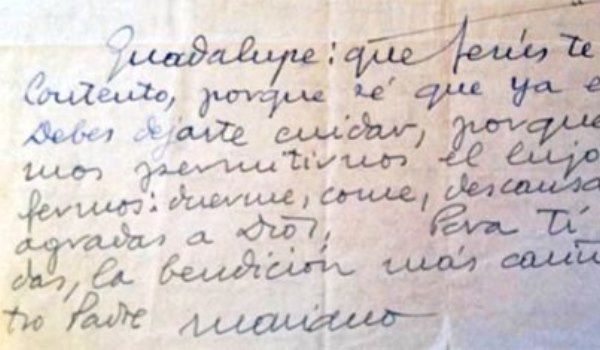 Guadalupe: que Jesús te
Contento, porque sé que ya e
Debes dejarte cuidar, porque
mos permitirnos el lujo
fermos: duerme, come, descansa
agradas a Dios. Para ti
das, la bendición más cariñ
tro Padre Mariano